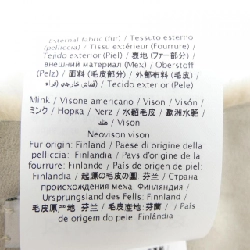 External fabric (fur) / Tessuto esterno
(pelliccia) / Tissu extérieur (fourrure) /
Tejido exterior (Piel) / 表地 (ファー部分) /
внешний материал (Мех) / Oberstoff
(Pelz) / 面料 (毛皮部分) / 外部布料 (毛皮) /
/ Tecido exterior (Pele)
Mink / Visone americano / Vison / Visón /
ミンク / Норка / Nerz / 水貂毛皮 / 歐洲水貂
/ Vison
Neovison vison
Fur origin: Finland / Paese di origine della
pelliccia: Finlandia / Pays d'origine de la
fourrure: Finlande / País de origen de piel:
Finlandia / 起源の毛皮の国 芬兰 / Страна
происхождения меха: Финляндия /
Ursprungsland des Fells: Finnland /
毛皮原产地: 芬兰 / 毛皮產地: 芬蘭 / País
de origem do pele: Finlândia